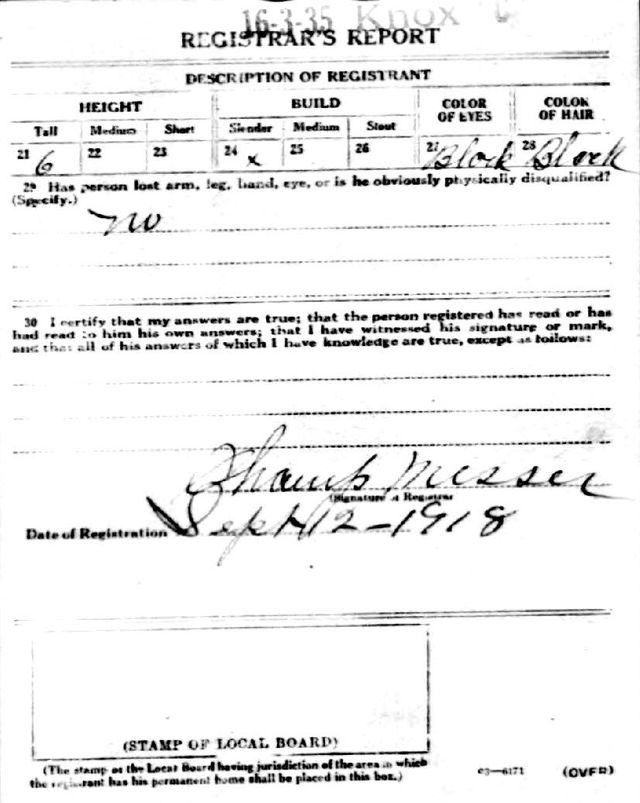 16-3-35 Knox C
REGISTRAR'S REPORT
DESCRIPTION OF REGISTRANT
HEIGHT BUILD COLOR OF EYES COLOR OF HAIR
Tall Medium Short Slender Medium Stout
21 6 22 23 24 x 25 26 27 Black 28 Black
29 Has person lost arm, leg, hand, eye, or is he obviously physically disqualified?
(Specify.)
no
30 I certify that my answers are true; that the person registered has read or has
had read to him his own answers; that I have witnessed his signature or mark,
and that all of his answers of which I have knowledge are true, except as follows:
Messer
(Signature of Registrar
Date of Registration Sept 12-1918
(STAMP OF LOCAL BOARD)
(The stamp of the Local Board having jurisdiction of the area in which
the registrant has his permanent home shall be placed in this box.)
03-6171 (OVER)